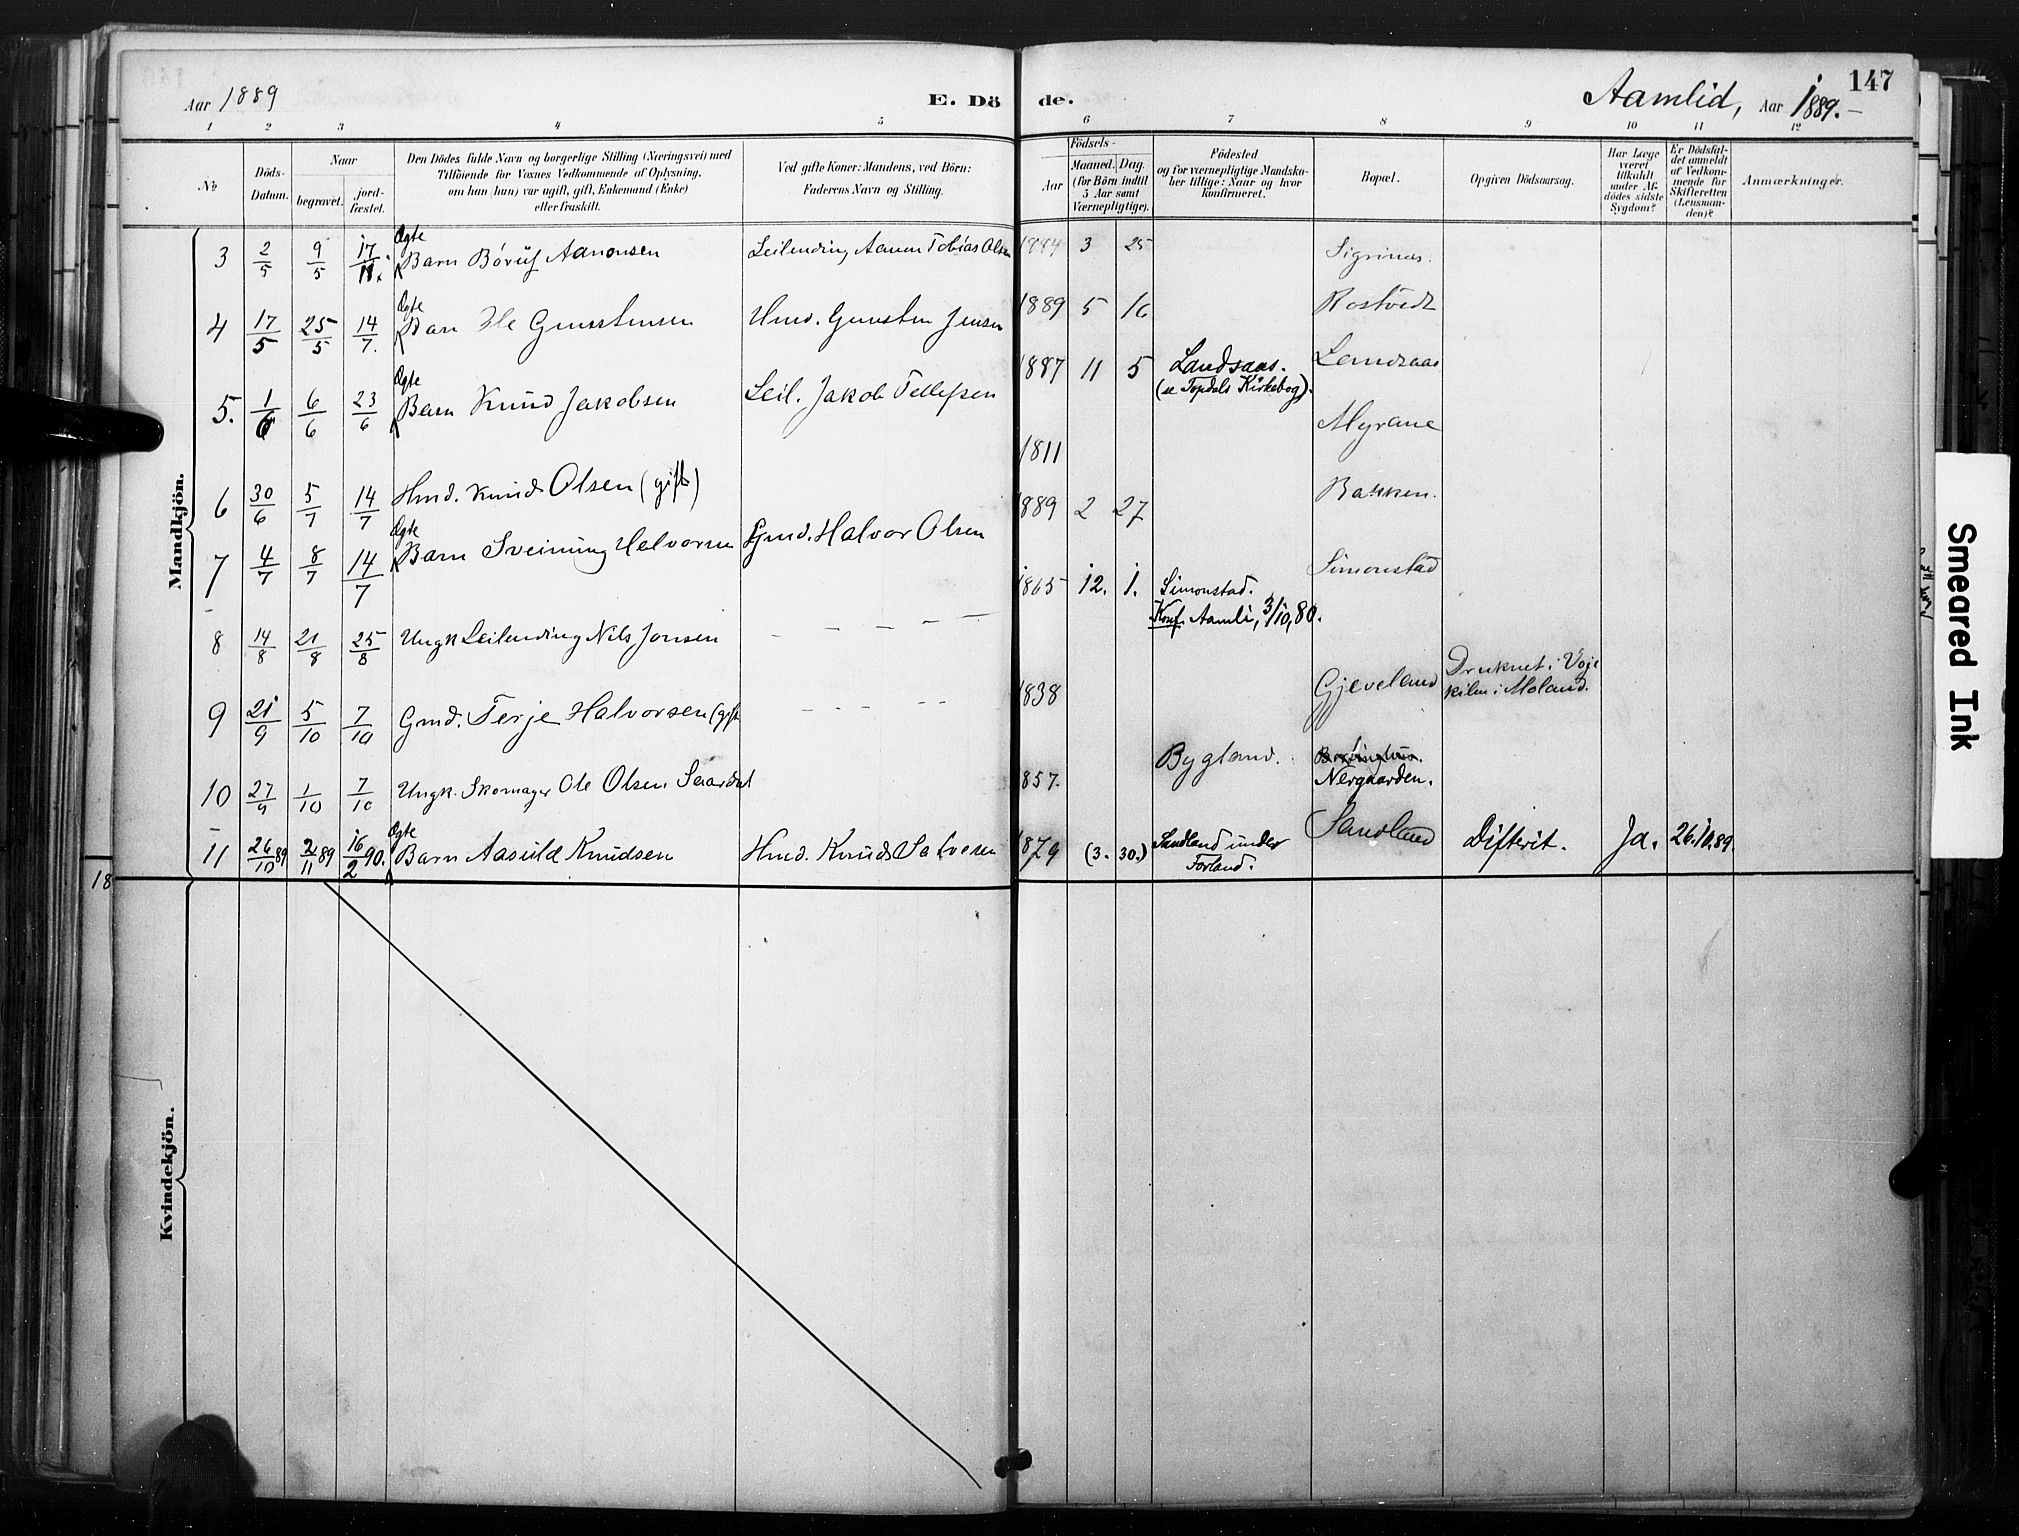 147
Aar 1889 E. Dö de. Aamlid, Aar 1889.-
1 2 3 4 5 6 7 8 9 10 11 12
No
Döds-Datum.
Naar
begravet.
jord-fæstet.
Den Dödes fulde Navn og borgerlige Stilling (Næringsvei) med
Tilföiende for Voxnes Vedkommende af Oplysning,
om han (hun) var ugift, gift, Enkemand (Enke)
eller fraskilt.
Ved gifte Koner: Mandens, ved Börn:
Faderens Navn og Stilling.
Födsels-
Aar
Maaned. Dag.
(for Börn indtil
5 Aar samt
Værnepligtige).
Födested
og for værnepligtige Mandska-
ber tillige: Naar og hvor
konfirmeret.
Bopæl.
Opgiven Dödsaarsag.
Har Læge
været
tilkaldt
under Af-
dödes sidste
Sygdom?
Er Dödsfal-
det anmeldt
af Vedkom-
mende for
Skifteretten
(Lensman-
den)?
Anmærkninger.
Mandkjön.
3 2/5 9/5 17/11. Ægte Barn Böruf Aanonsen Leilending Aanon Tobias Olsen 1884 3 25 Sigrinas.
4 17/5 25/5 14/7. Ægte Barn Ole Gunstensen Hmd. Gunsten Jensen 1889 5 16 Rostvedt
5. 1/6 6/6 23/6 Ægte Barn Knud Jakobsen Leil. Jakob Tellefsen 1887 11 5 Landsaas. Landsaas
(se Topdals Kirkebog).
6 30/6 5/7 14/7 Hmd. Knud Olsen (gift) 1811 Myrane
7 4/7 8/7 14/7 Ægte Barn Sveinung Halvorsen Gmd. Halvor Olsen 1889 2 27 Bakken.
8 14/8 21/8 25/8 Ungk. Leilending Nils Jonsen - - - - - 1865 12. 1. Simonstad. Simonstad
Konf. Aamli, 3/10, 80.
9 21/9 5/10 7/10 Gmd. Terje Halvorsen (gift - - - - - 1838 Gjeveland Druknet i Voje
kilen i Moland.
10 27/9 1/10 7/10 Ungk. Skomager Ole Olsen Saardal 1857. Bygland.
Nergaarden.
11 26/10 89 2/11 89 16/2 90. Ægte Barn Aasuld Knudsen Hmd. Knud Salvesen 1879 (3. 30.) Sandland under Sandland Difterit. Ja. 26.10.89.
Forland.
18
Kvindekjön.
Smeared Ink